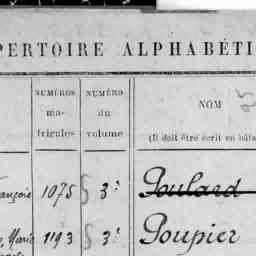 PERTOIRE ALPHABÉTI
NUMÉROS
ma-
tricules
NUMÉRO
du
volume
NOM
(Il doit être écrit en bâta
ançois 1075 3e Poulard
Marie 1193 3e Poupier